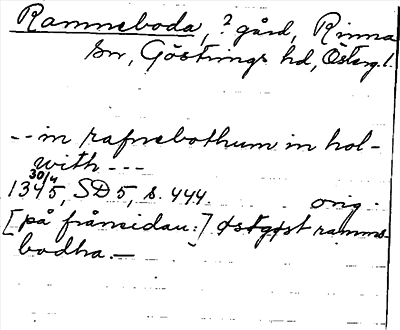 Ramneboda, ? gård, Rinna
sn, Göstrings hd, Österg. l.
-- in rafnebothum in hol-
with ---
30/4
1345, SD 5, s. 444. orig.
[på frånsidan:] østgøst ramms-
bodha. —